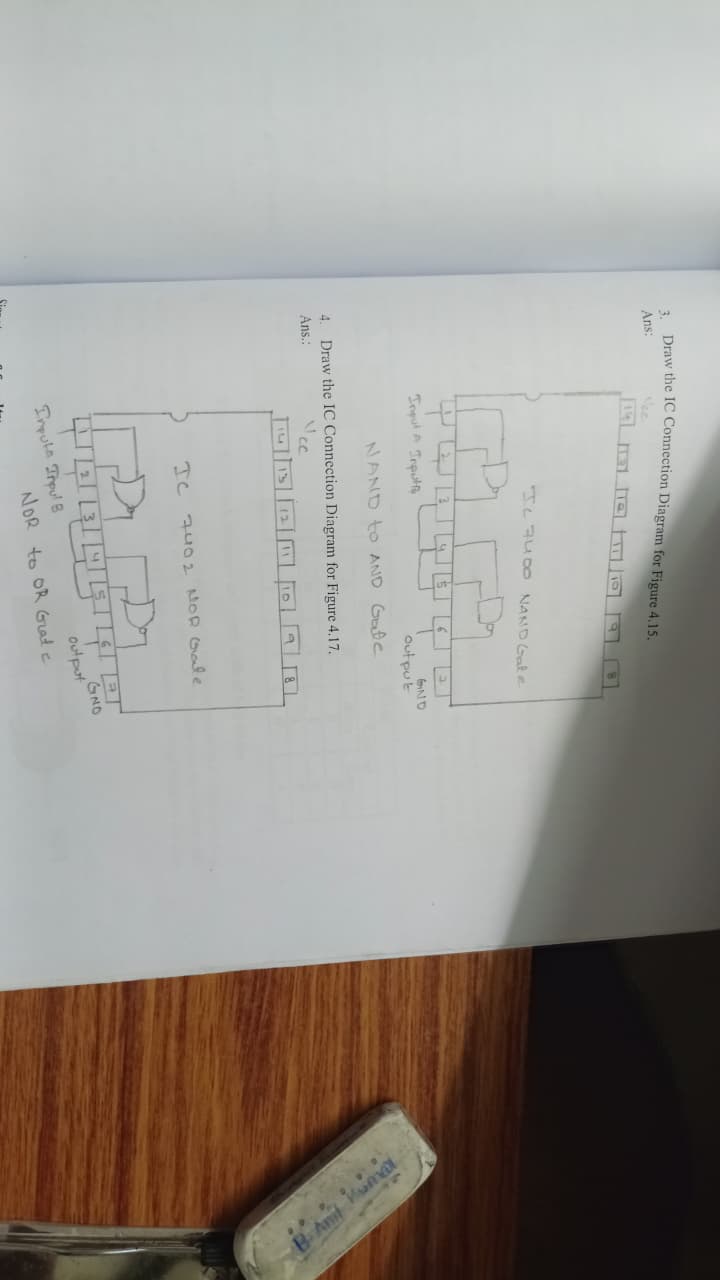 3. Draw the IC Connection Diagram for Figure 4.15.
Ans:
Vcc
14 13 12 11 10 9 8
IC 7400 NAND Gate
1 2 3 4 5 6 7
Input A Input B GND
output
NAND to AND Gate
4. Draw the IC Connection Diagram for Figure 4.17.
Ans.:
Vcc
14 13 12 11 10 9 8
IC 7402 NOR Gate
1 2 3 4 5 6 7
GND
output
Input A Input B
NOR to OR Gate